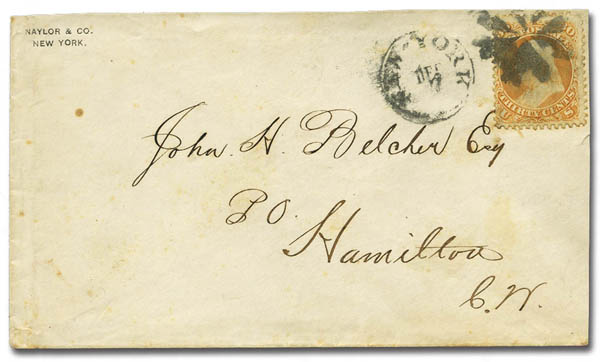 NAYLOR & CO.
NEW YORK.
NEW-YORK
DEC
John H. Belcher Esq
P.O.
Hamilton
C.W.